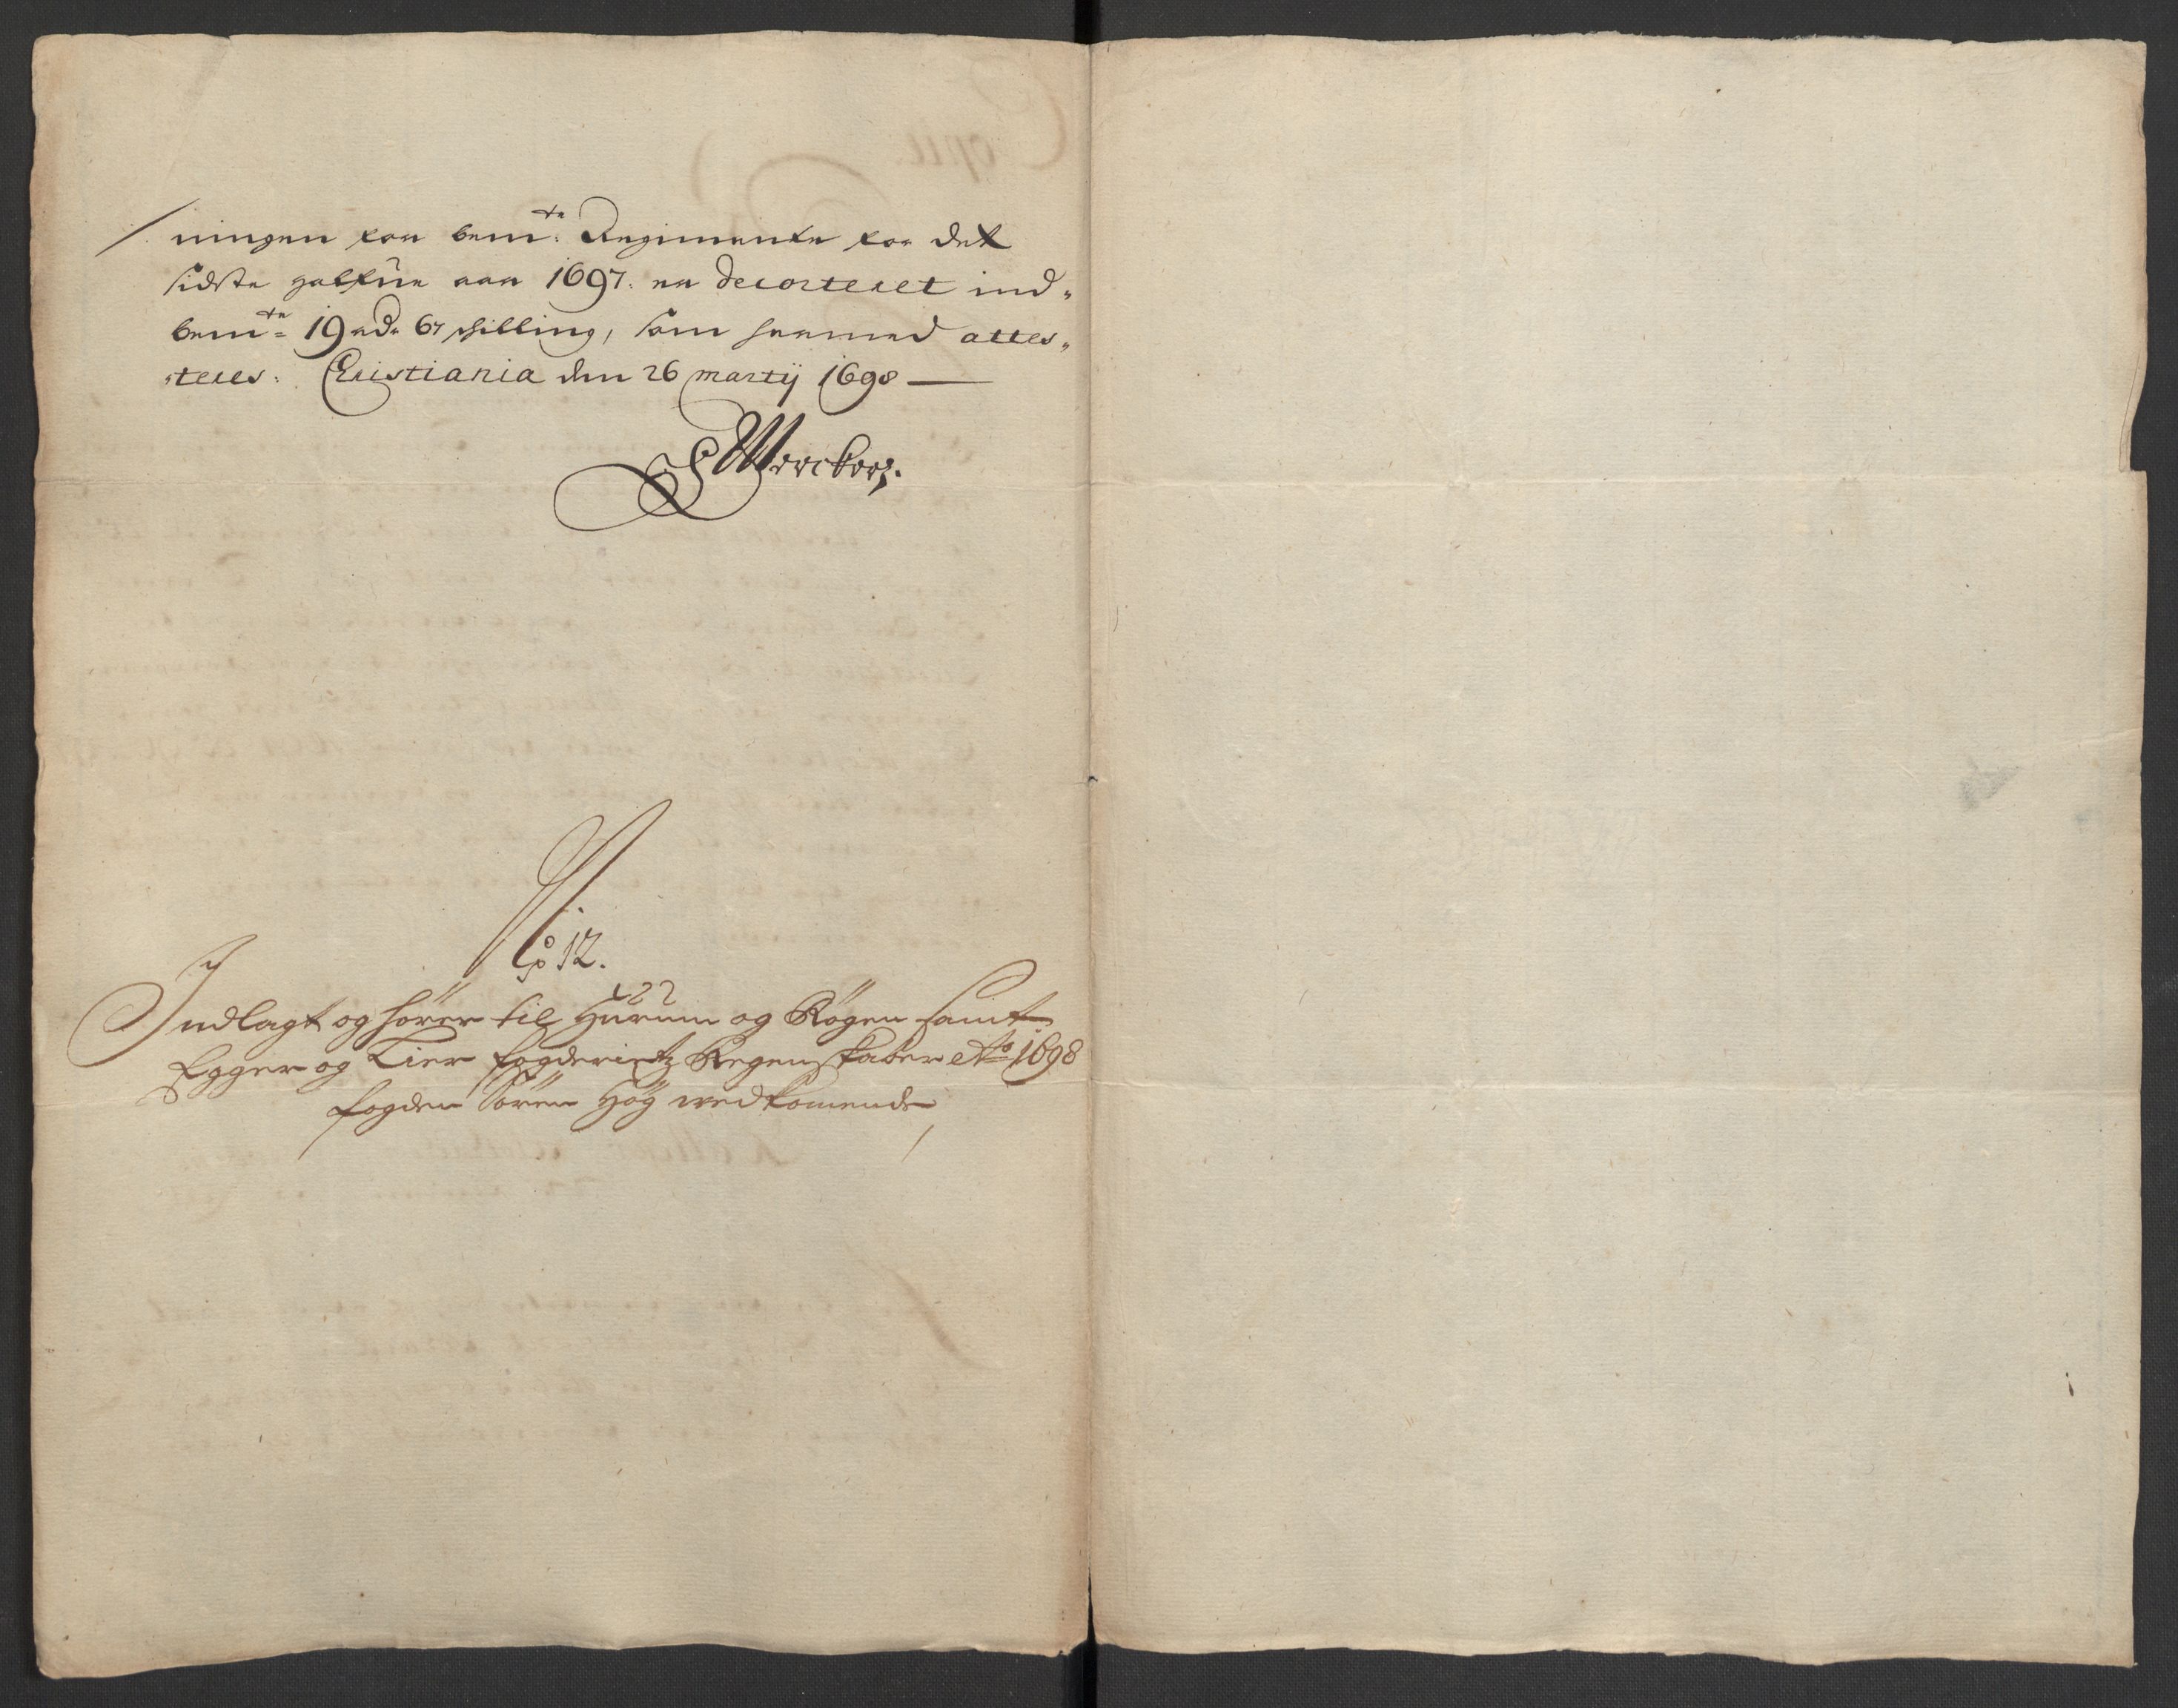 ningen for bem:te Regimente for det
sidste halfue aar 1697. er decorteret ind-
bem:te 19 rdr 67 skilling, som hermed attes-
teres: Christiania den 26 martij 1698
No 12.
Indlagt og hörer til Hurum og Rögen samt
Egger og Lier fogderietz Regenskaber Ao 1698
fogden Sören Höÿ wedkomende